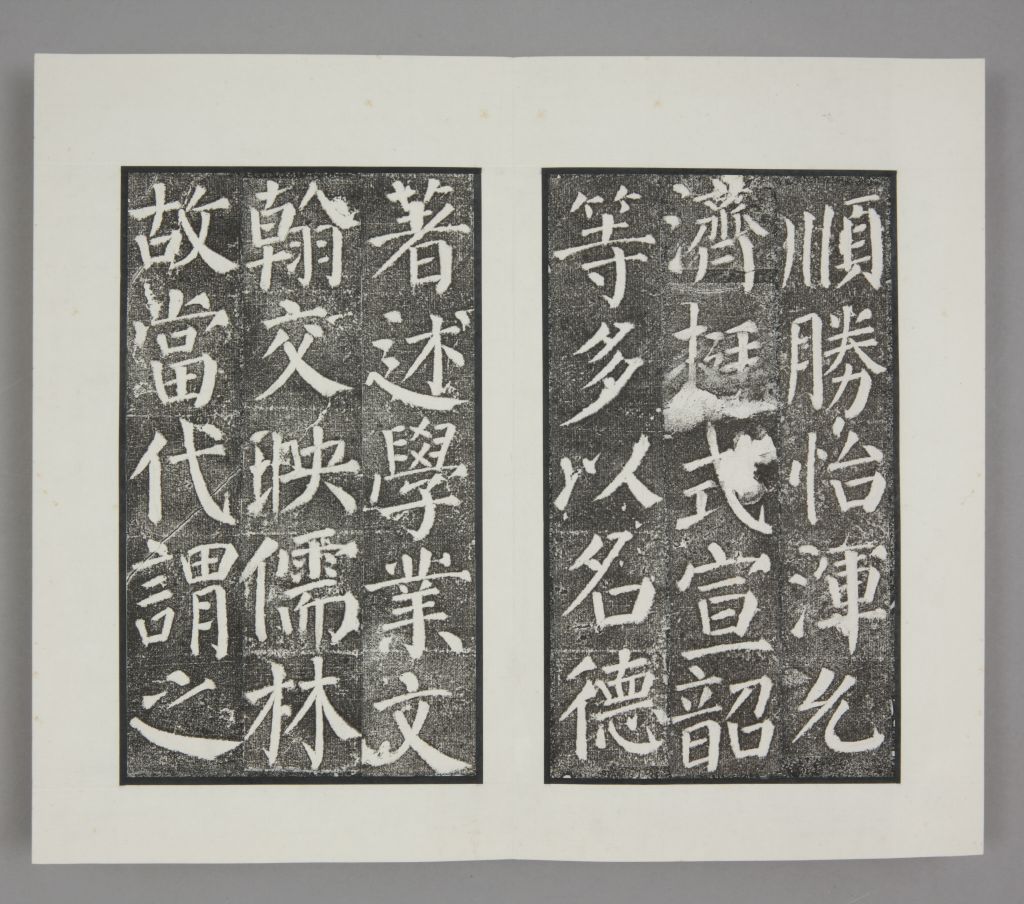 順勝怡渾允
濟挺式宣韶
等多以名德
著述學業文
翰交映儒林
故當代謂之